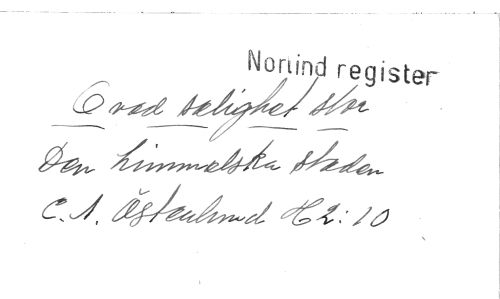 Norlind register
O vad salighet stor
Den himmelska staden
C. A. Österlund H2:10